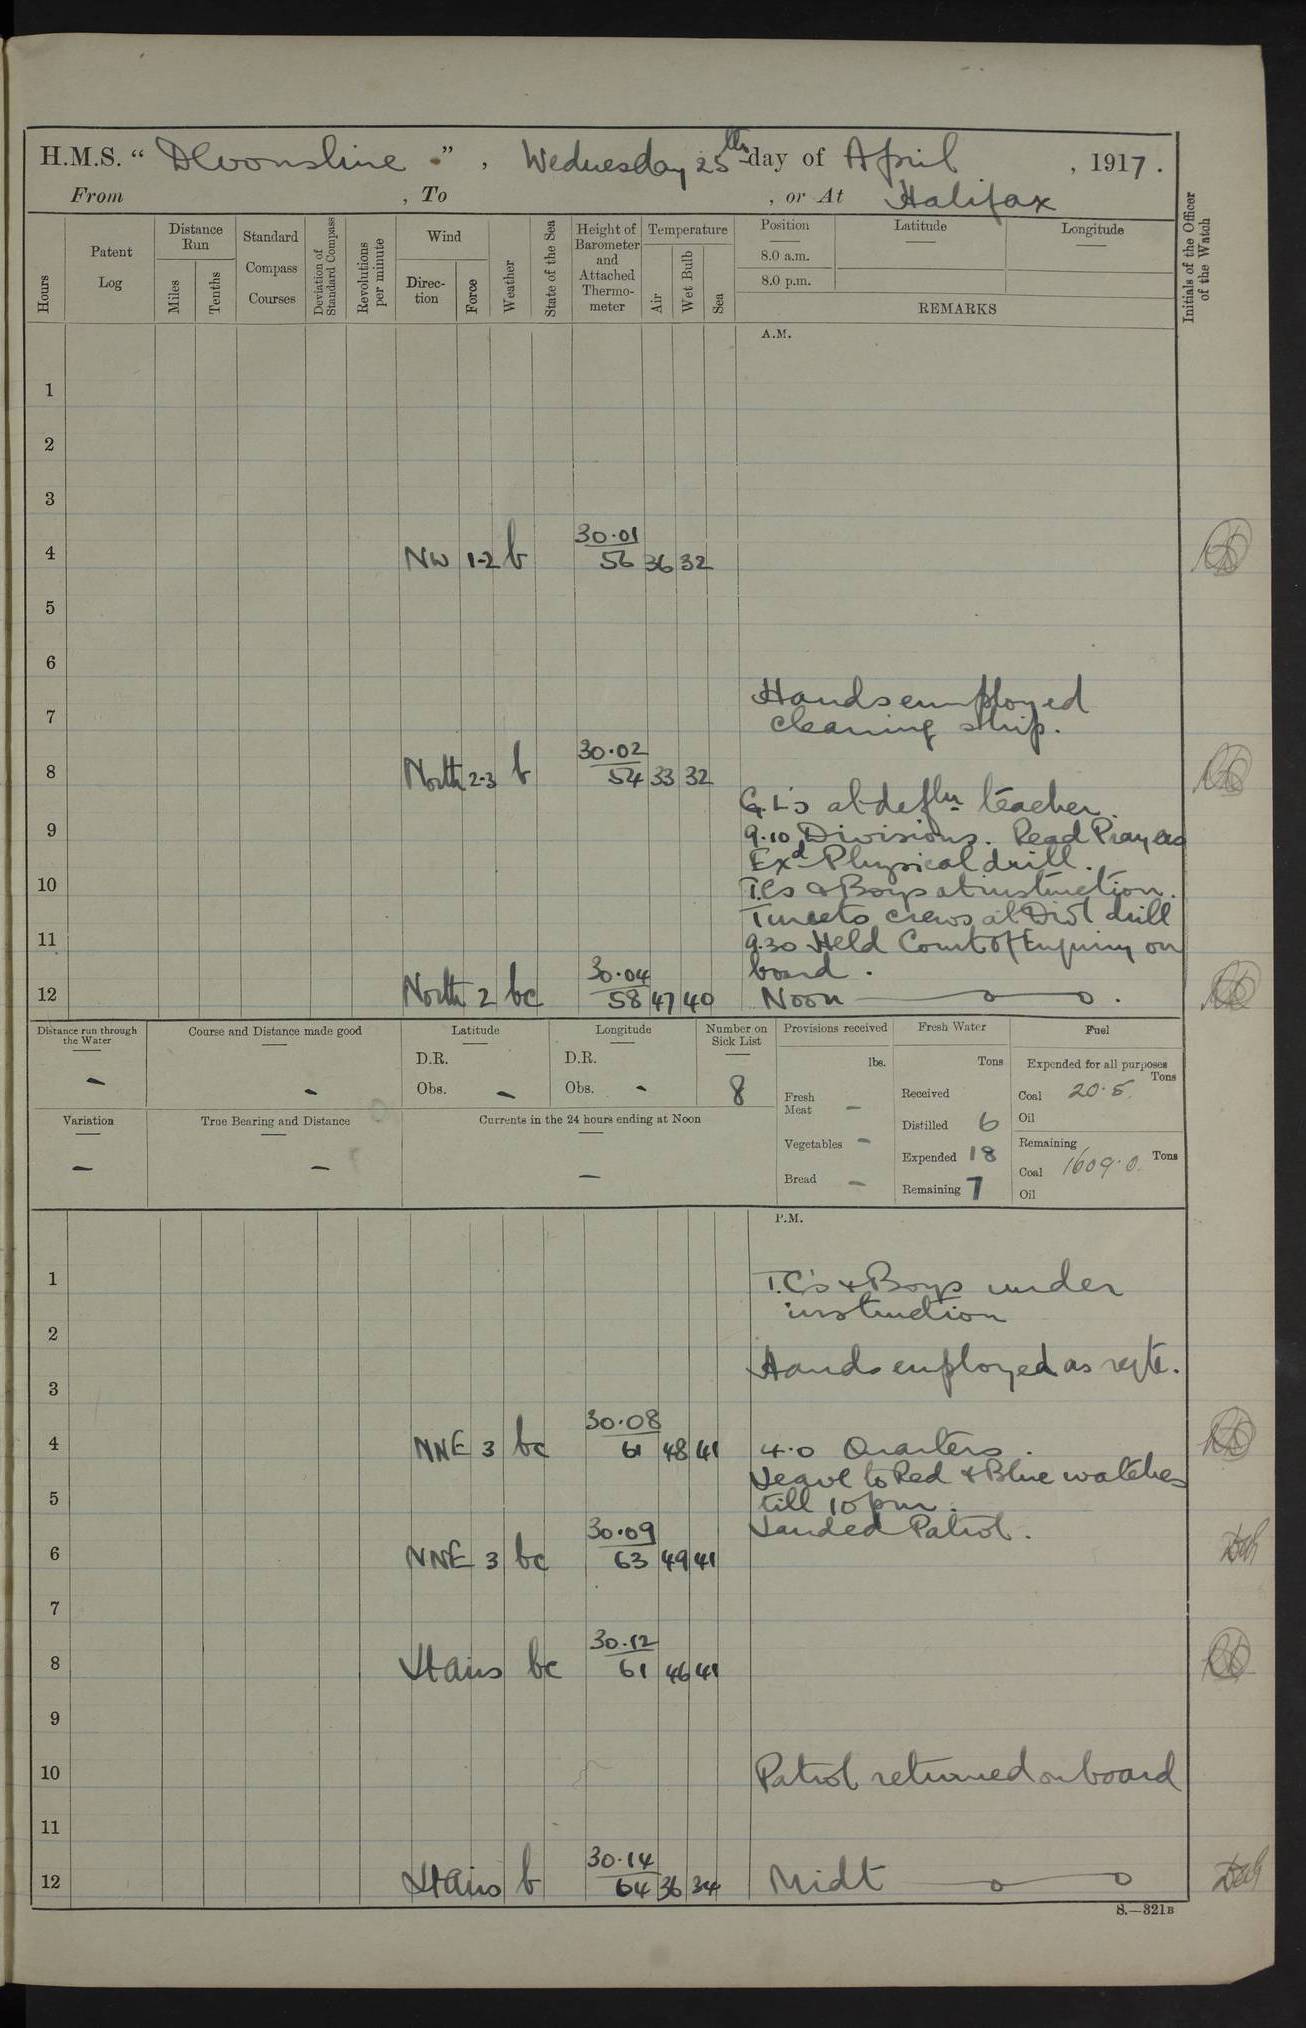 H.M.S. “ Devonshire ” , Wednesday 25th day of April , 1917 .
From , To , or At Halifax
Hours
Patent Log
Distance Run
Miles
Tenths
Standard Compass Courses
Deviation of Standard Compass
Revolutions per minute
Wind
Direc-tion
Force
Weather
State of the Sea
Height of Barometer and Attached Thermo-meter
Temperature
Air
Wet Bulb
Sea
Position
8.0 a.m.
8.0 p.m.
Latitude
Longitude
REMARKS
Initials of the Officer of the Watch
A.M.
1
2
3
30.01
4 NW 1-2 b 56 36 32
5
6
Hands employed
7 cleaning ship.
30.02
8 North 2-3 b 54 33 32
G.L's at defln teacher.
9 9.10 Divisions. Read Prayers
Exd Physical drill.
10 T.Cs & Boys at instruction.
Turrets crews at Divl drill
11 9.30 Held Court of Enquiry on
30.04 board.
12 North 2 bc 58 47 40 Noon
Distance run through the Water
–
Course and Distance made good
–
Latitude
D.R.
Obs. –
Longitude
D.R.
Obs. –
Number on Sick List
8
Provisions received
lbs.
Fresh Meat –
Vegetables –
Bread –
Fresh Water
Tons
Received
Distilled 6
Expended 18
Remaining 7
Fuel
Expended for all purposes
Tons
Coal 20.5
Oil
Remaining
Coal 1609.0. Tons
Oil
Variation
–
True Bearing and Distance
–
Currents in the 24 hours ending at Noon
–
P.M.
1 T.C's & Boys under
instruction
2
Hands employed as reqte.
3
30.08
4 NNE 3 bc 61 48 41 4.0 Quarters.
Leave to Red & Blue watches
5 till 10 pm.
30.09 Landed Patrol.
6 NNE 3 bc 63 49 41
7
30.12
8 bc 61 46 41
9
10 Patrol returned on board
11
30.14
12 b 64 36 34 Midt
S.—321B